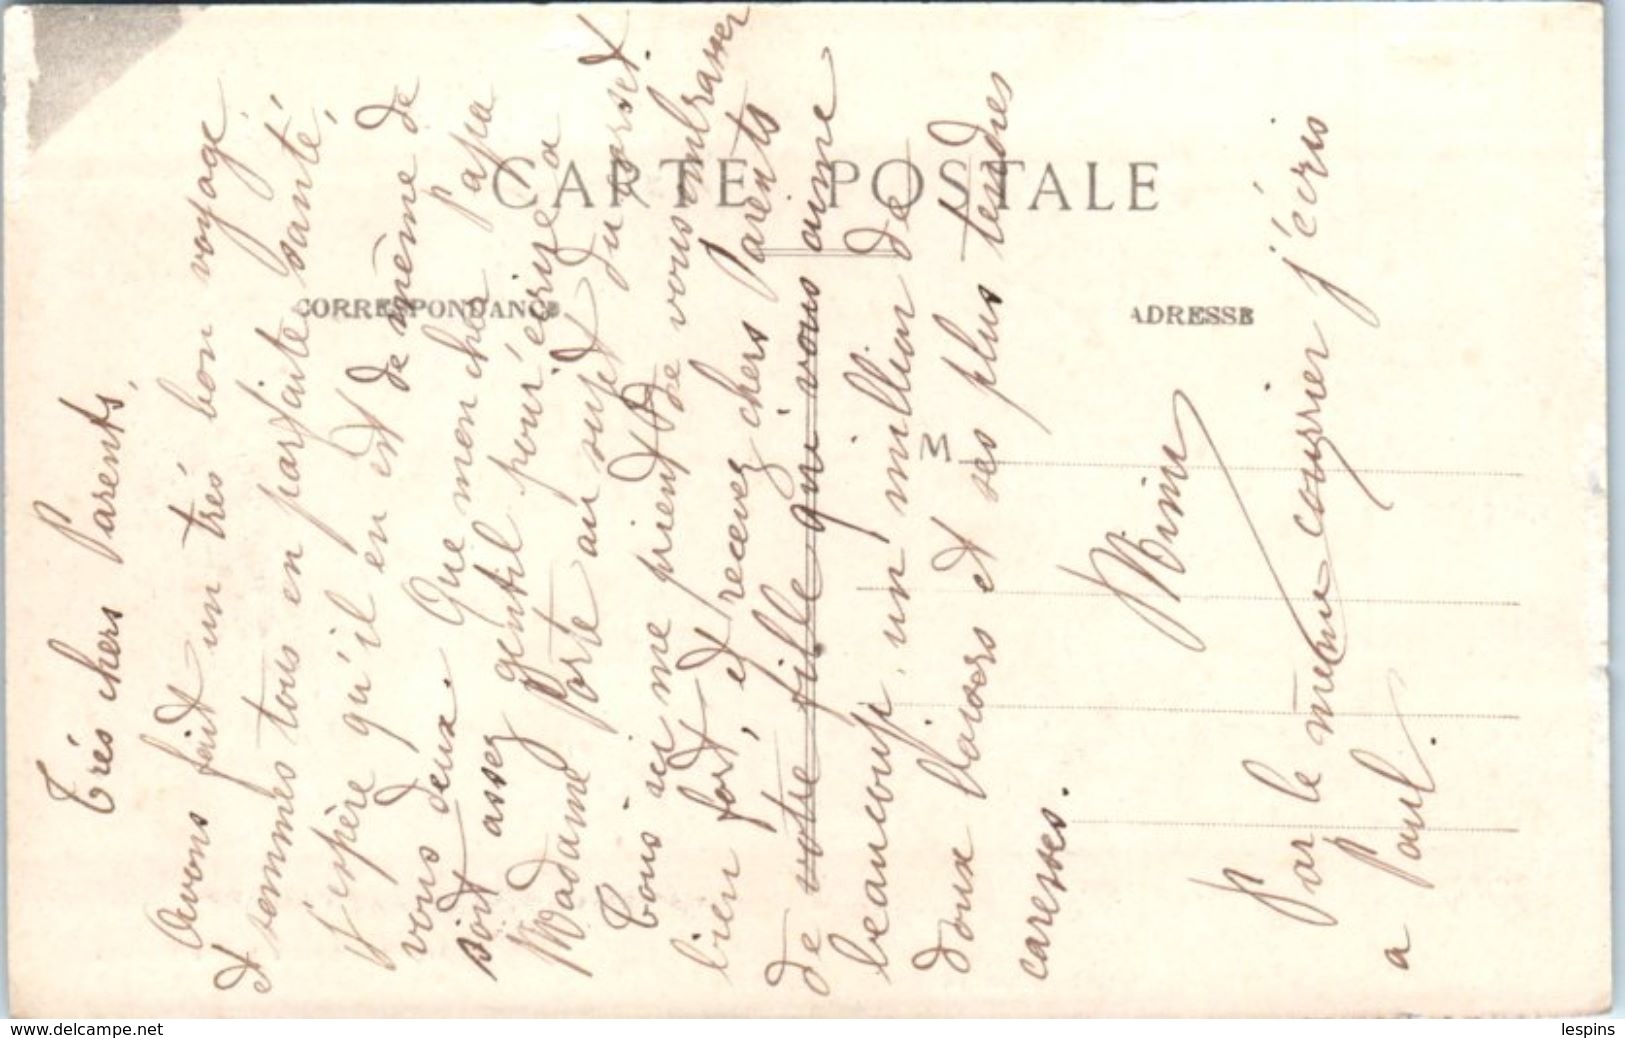 CARTE POSTALE
CORRESPONDANCE
ADRESSE
M
Trés chers Parents,
Avons fait un trés bon voyage
et sommes tous en parfaite santé,
j'espère qu'il en est de même de
vous deux. Que mon cher papa
soit assez gentil pour écrire a
Madame Porte au sujet du corset.
Tous ici me prient de vous embrasser
bien fort, et recevez chers Parents
de votre fille qui vous aime
beaucoup, un million de
doux baisers et ses plus tendres
caresses.
Mimi
Par le même courrier j'écris
a Paul.
www.delcampe.net
lespins